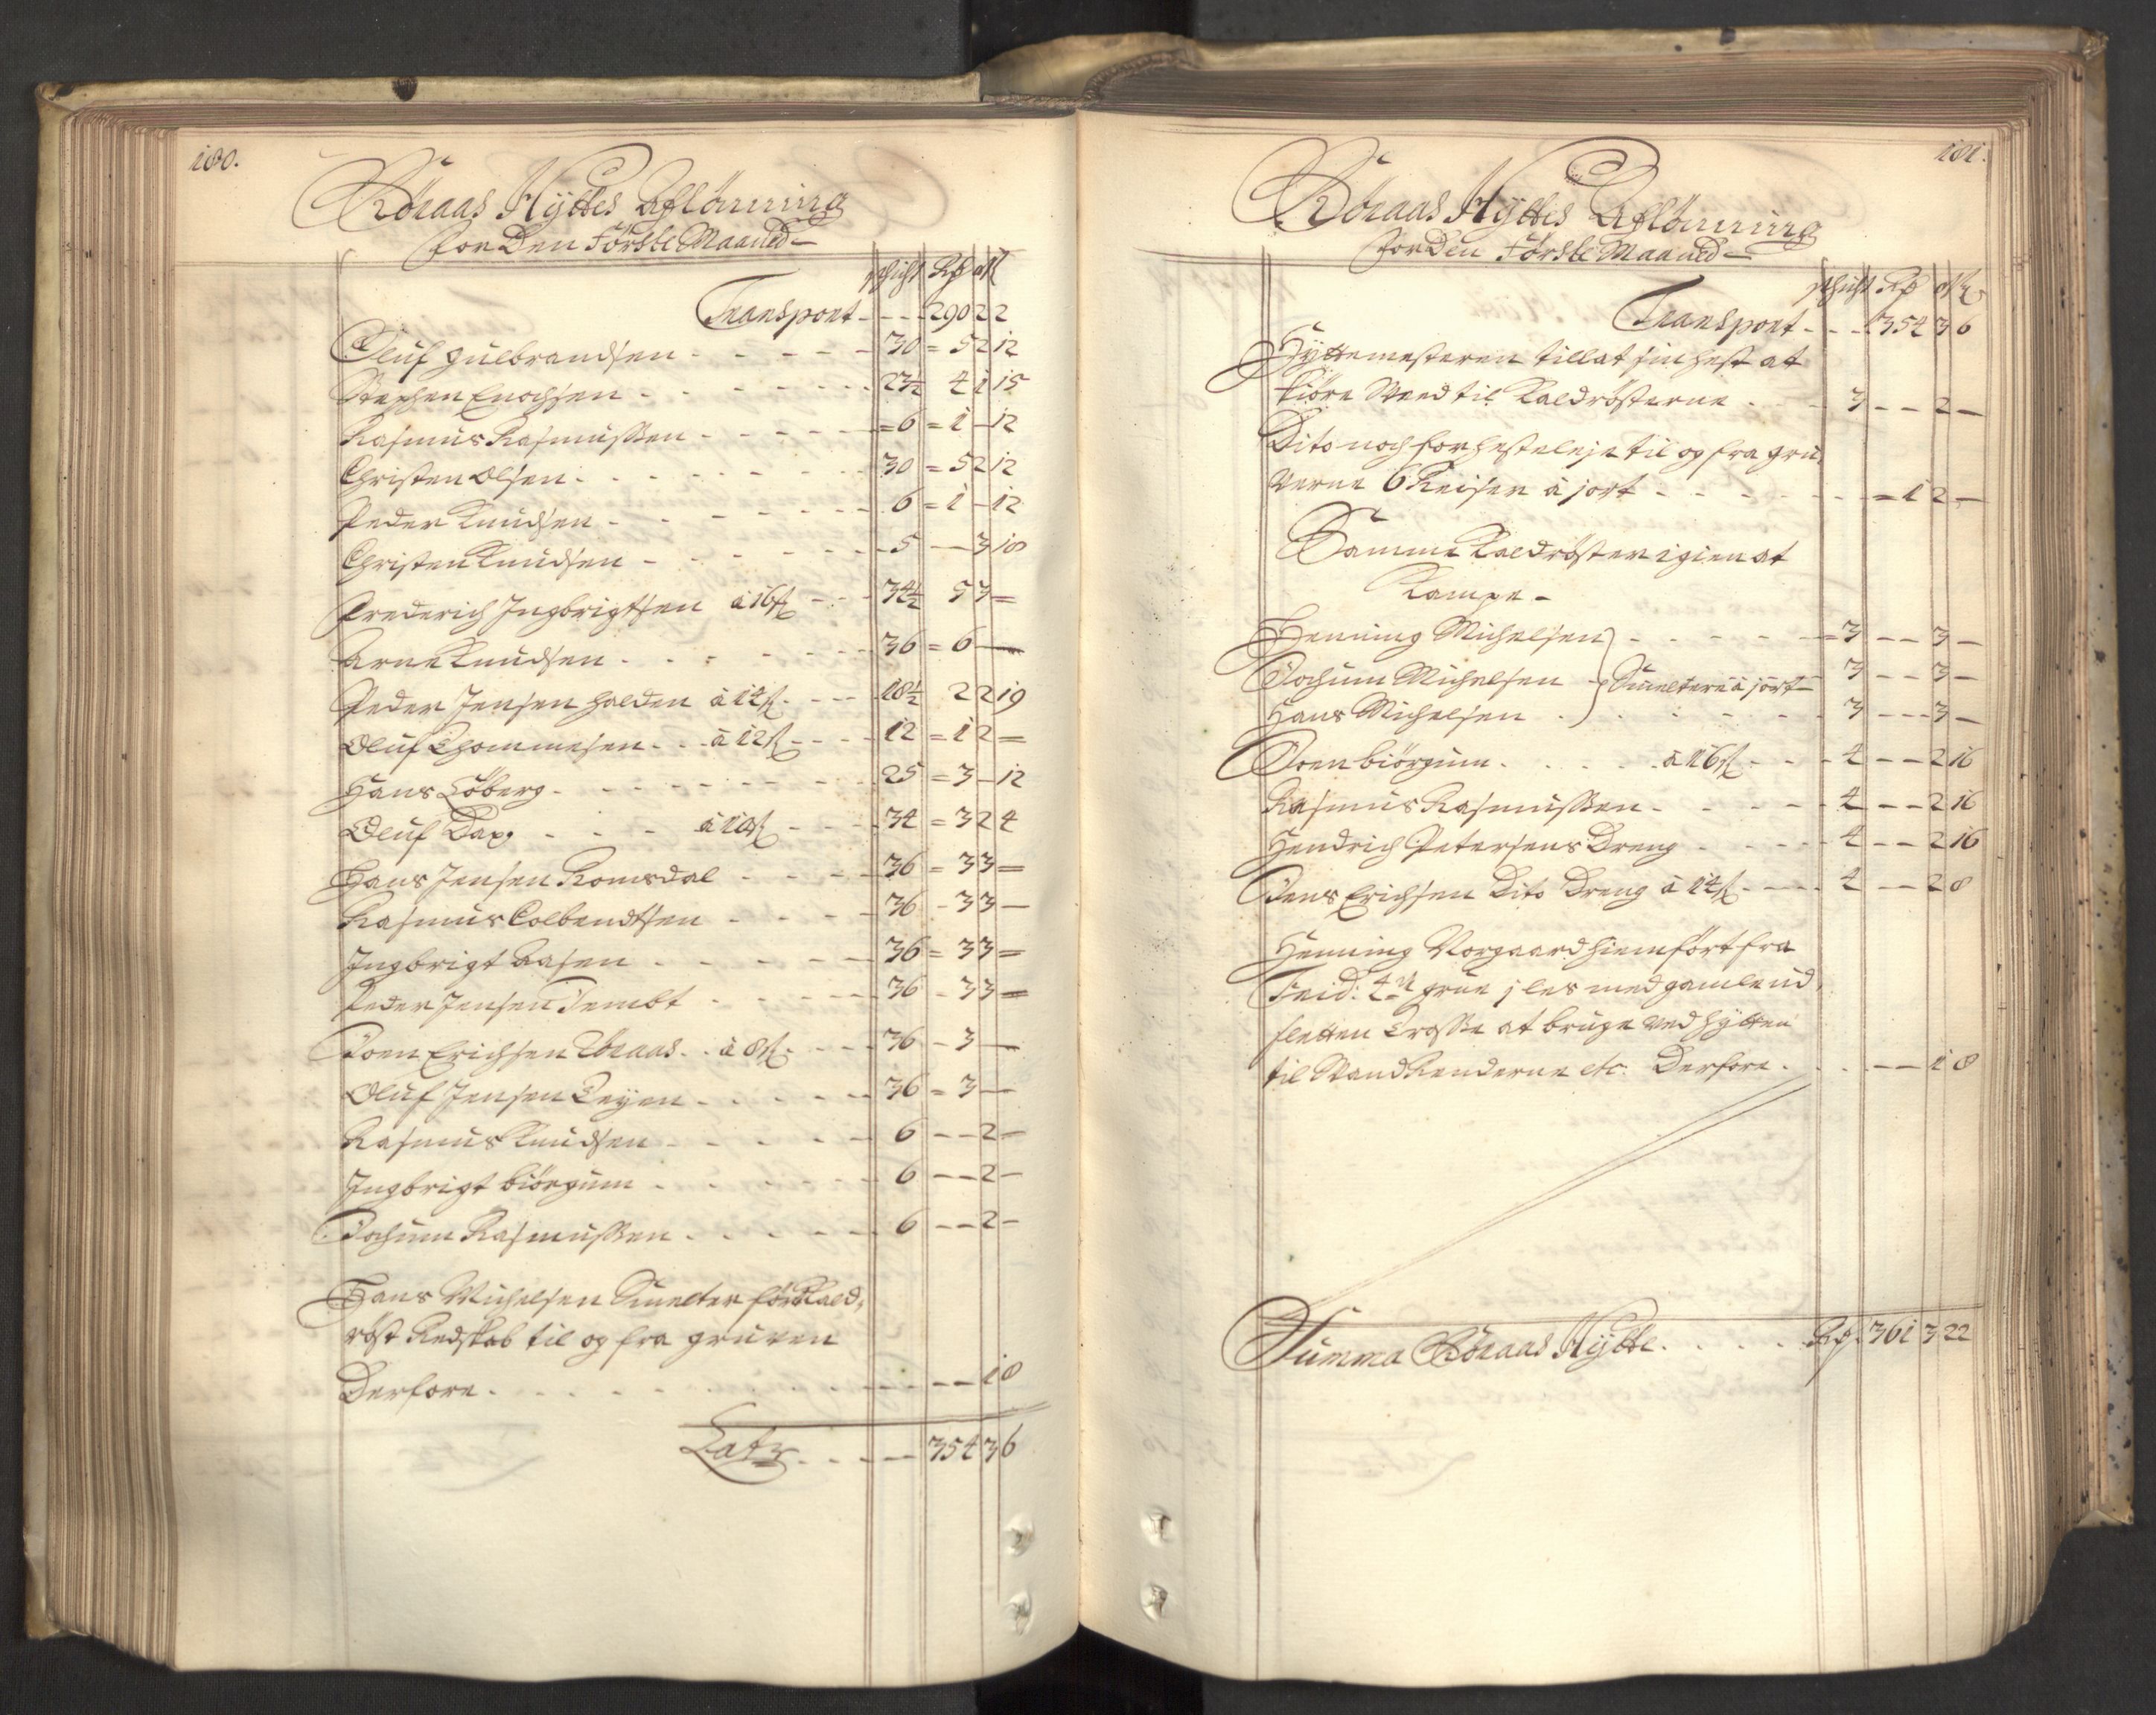 180.
Röraas Hyttes Aflönning
for Den Förste Maaned
schicht Rdr ort sk
Transport - - - 290 2 2
Oluf Gulbrandsen - - - - - 30 = 5 2 12
Stephen Enochsen - - - - - 23½ 4 1 15
Rasmus Rasmussen - - - - - = 6 = 1 - 12
Christen Olsen - - - - - 30 = 5 2 12
Peder Knudsen - - - - - 6 = 1 - 12
Christen Knudsen - - - - - 5 - - 3 18
Frederich Ingbrigtsen à 16 sk - - 34½ 5 3 =
Arne Knudsen - - - - - 36 = 6 - -
Peder Jensen Halden à 14 sk - - - 18½ 2 2 19
Oluf Thommesen - - à 12 sk - - - 12 = 1 2 =
Hans Löberg - - - - - 25 = 3 - 12
Oluf Dax - - - à 10 sk - - - 34 = 3 2 4
Hans Jensen Romsdal - - - - 36 = 3 3 =
Rasmus Colbendtsen - - - - 36 - 3 3 -
Ingbrigt Aasen - - - - - 36 = 3 3 =
Peder Jensen Tembt - - - - 36 - 3 3 =
Joen Erichsen Röraas - - à 8 sk - - - 36 - 3 -
Oluf Jensen Teyen - - - - 36 = 3 -
Rasmus Knudsen - - - - - 6 - - 2 -
Ingbrigt Biörgum - - - - - 6 - - 2 -
Jochum Rasmussen - - - - - 6 - - 2 -
Hans Michelsen Smelter för Kald-
röst Redskab til og fra gruven
Derfore - - - - - - - - 18
Latz - - - - 354 3 6
181.
Röraas Hyttes Aflönning
for Den Förste Maaned
schicht Rdr ort sk
Transport - - - 354 3 6
Hyttemesteren tillat sin hest at
kiöre Weed til Kaldrösterne - - 3 - - 2 -
Dito noch for hesteleje til og fra gru-
verne 6 Reiser à j ort - - - - - = 1 2 -
Samme Kaldröster igien at
Rampe -
Henning Michelsen - - - - - = 3 - - 3 -
Jochum Michelsen - Smeltere à j ort - 3 - - 3 -
Hans Michelsen - - - - - 3 - - - 3 -
Joen Biörgum - - - - à 16 sk - - - 4 - - 2 16
Rasmus Rasmussen - - - - 4 - - 2 16
Hendrich Petersens Dreng - - - 4 - - 2 16
Jens Erichsen Dito Dreng à 14 sk - - - 4 - - 2 8
Henning Vorgaard hiemfört fra
grue j les med gamle ud-
sletten Trosse at bruge ved Hytten
til Vand Renderne etc. Derfore - - - - - 1 8
Summa Röraas Hytte - - - - Rdr 361 3 22